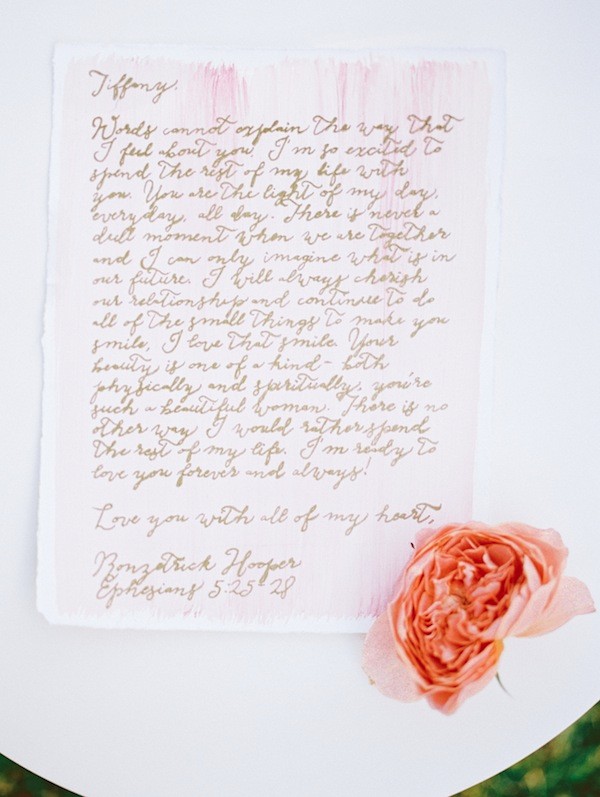 Tiffany,
Words cannot explain the way that
I feel about you. I'm so excited to
spend the rest of my life with
you. You are the light of my day,
everyday, all day. There is never a
dull moment when we are together
and I can only imagine what is in
our future. I will always cherish
our relationship and continue to do
all of the small things to make you
smile, I love that smile. Your
beauty is one of a kind - both
physically and spiritually, you're
such a beautiful woman. There is no
other way I would rather spend
the rest of my life. I'm ready to
love you forever and always!
Love you with all of my heart,
Bonzatrick Hooper
Ephesians 5:25-28